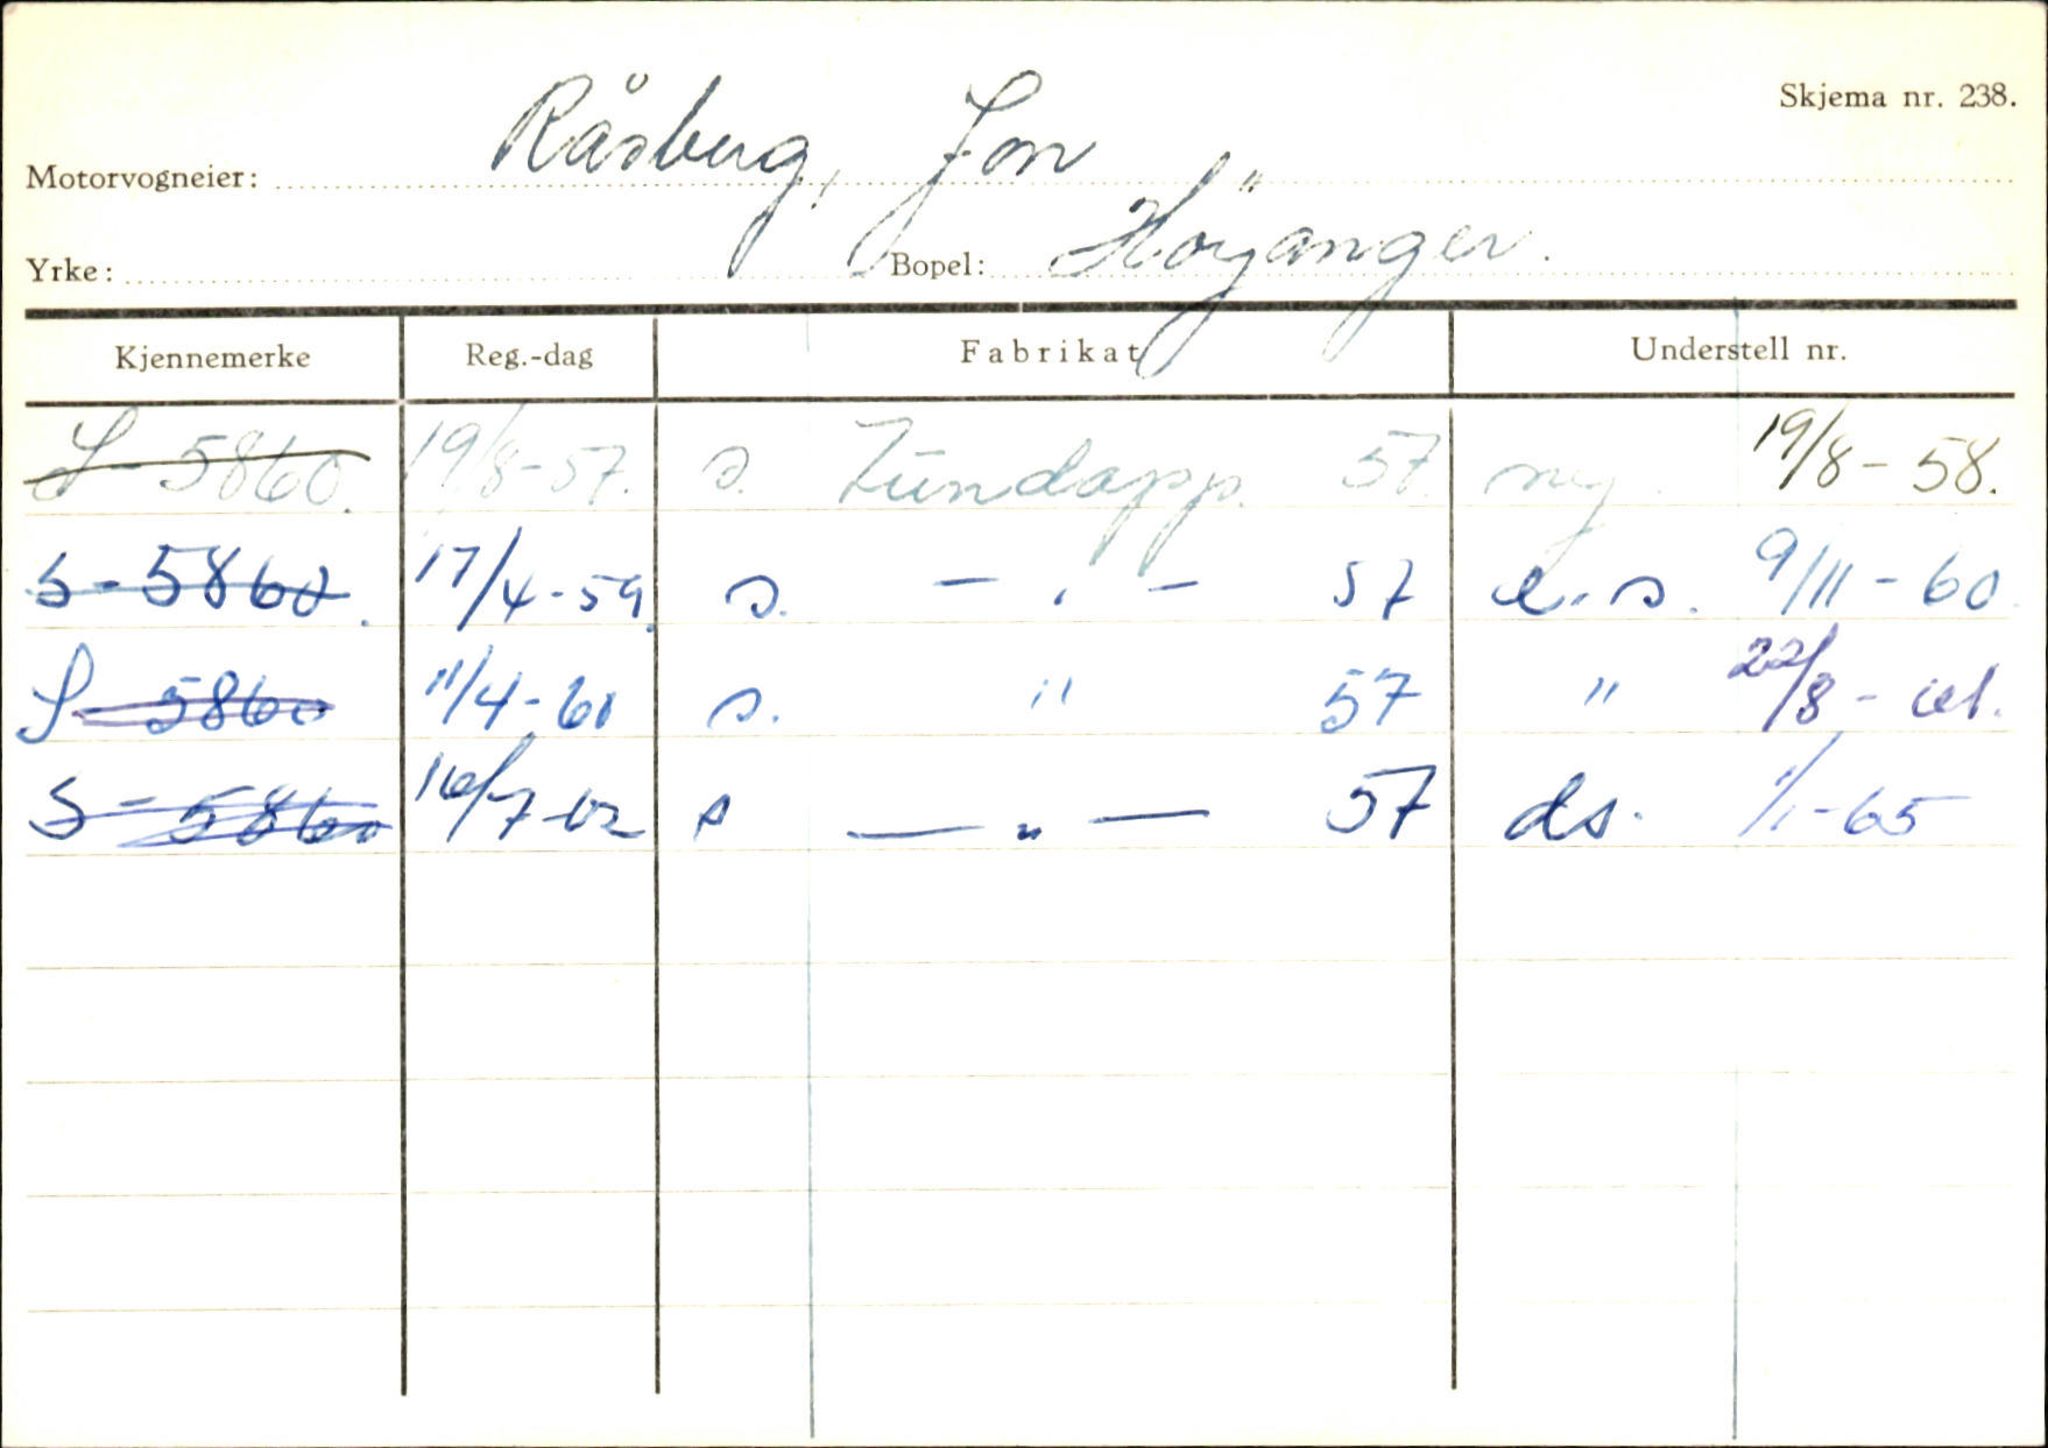 Skjema nr. 238.
Motorvogneier: Råsberg, Jon
Yrke: Bopel: Höyanger.
Kjennemerke Reg.-dag Fabrikat Understell nr.
S-5860. 19/8-57. s. Zündapp. 57. ny. 19/8-58.
S-5860. 17/4-59. s. -"- 57 d.s. 9/11-60.
S-5860 11/4-60 s. " 57 " 22/8-61.
S-5860 16/7-62 s -"- 57 ds. 1/1-65